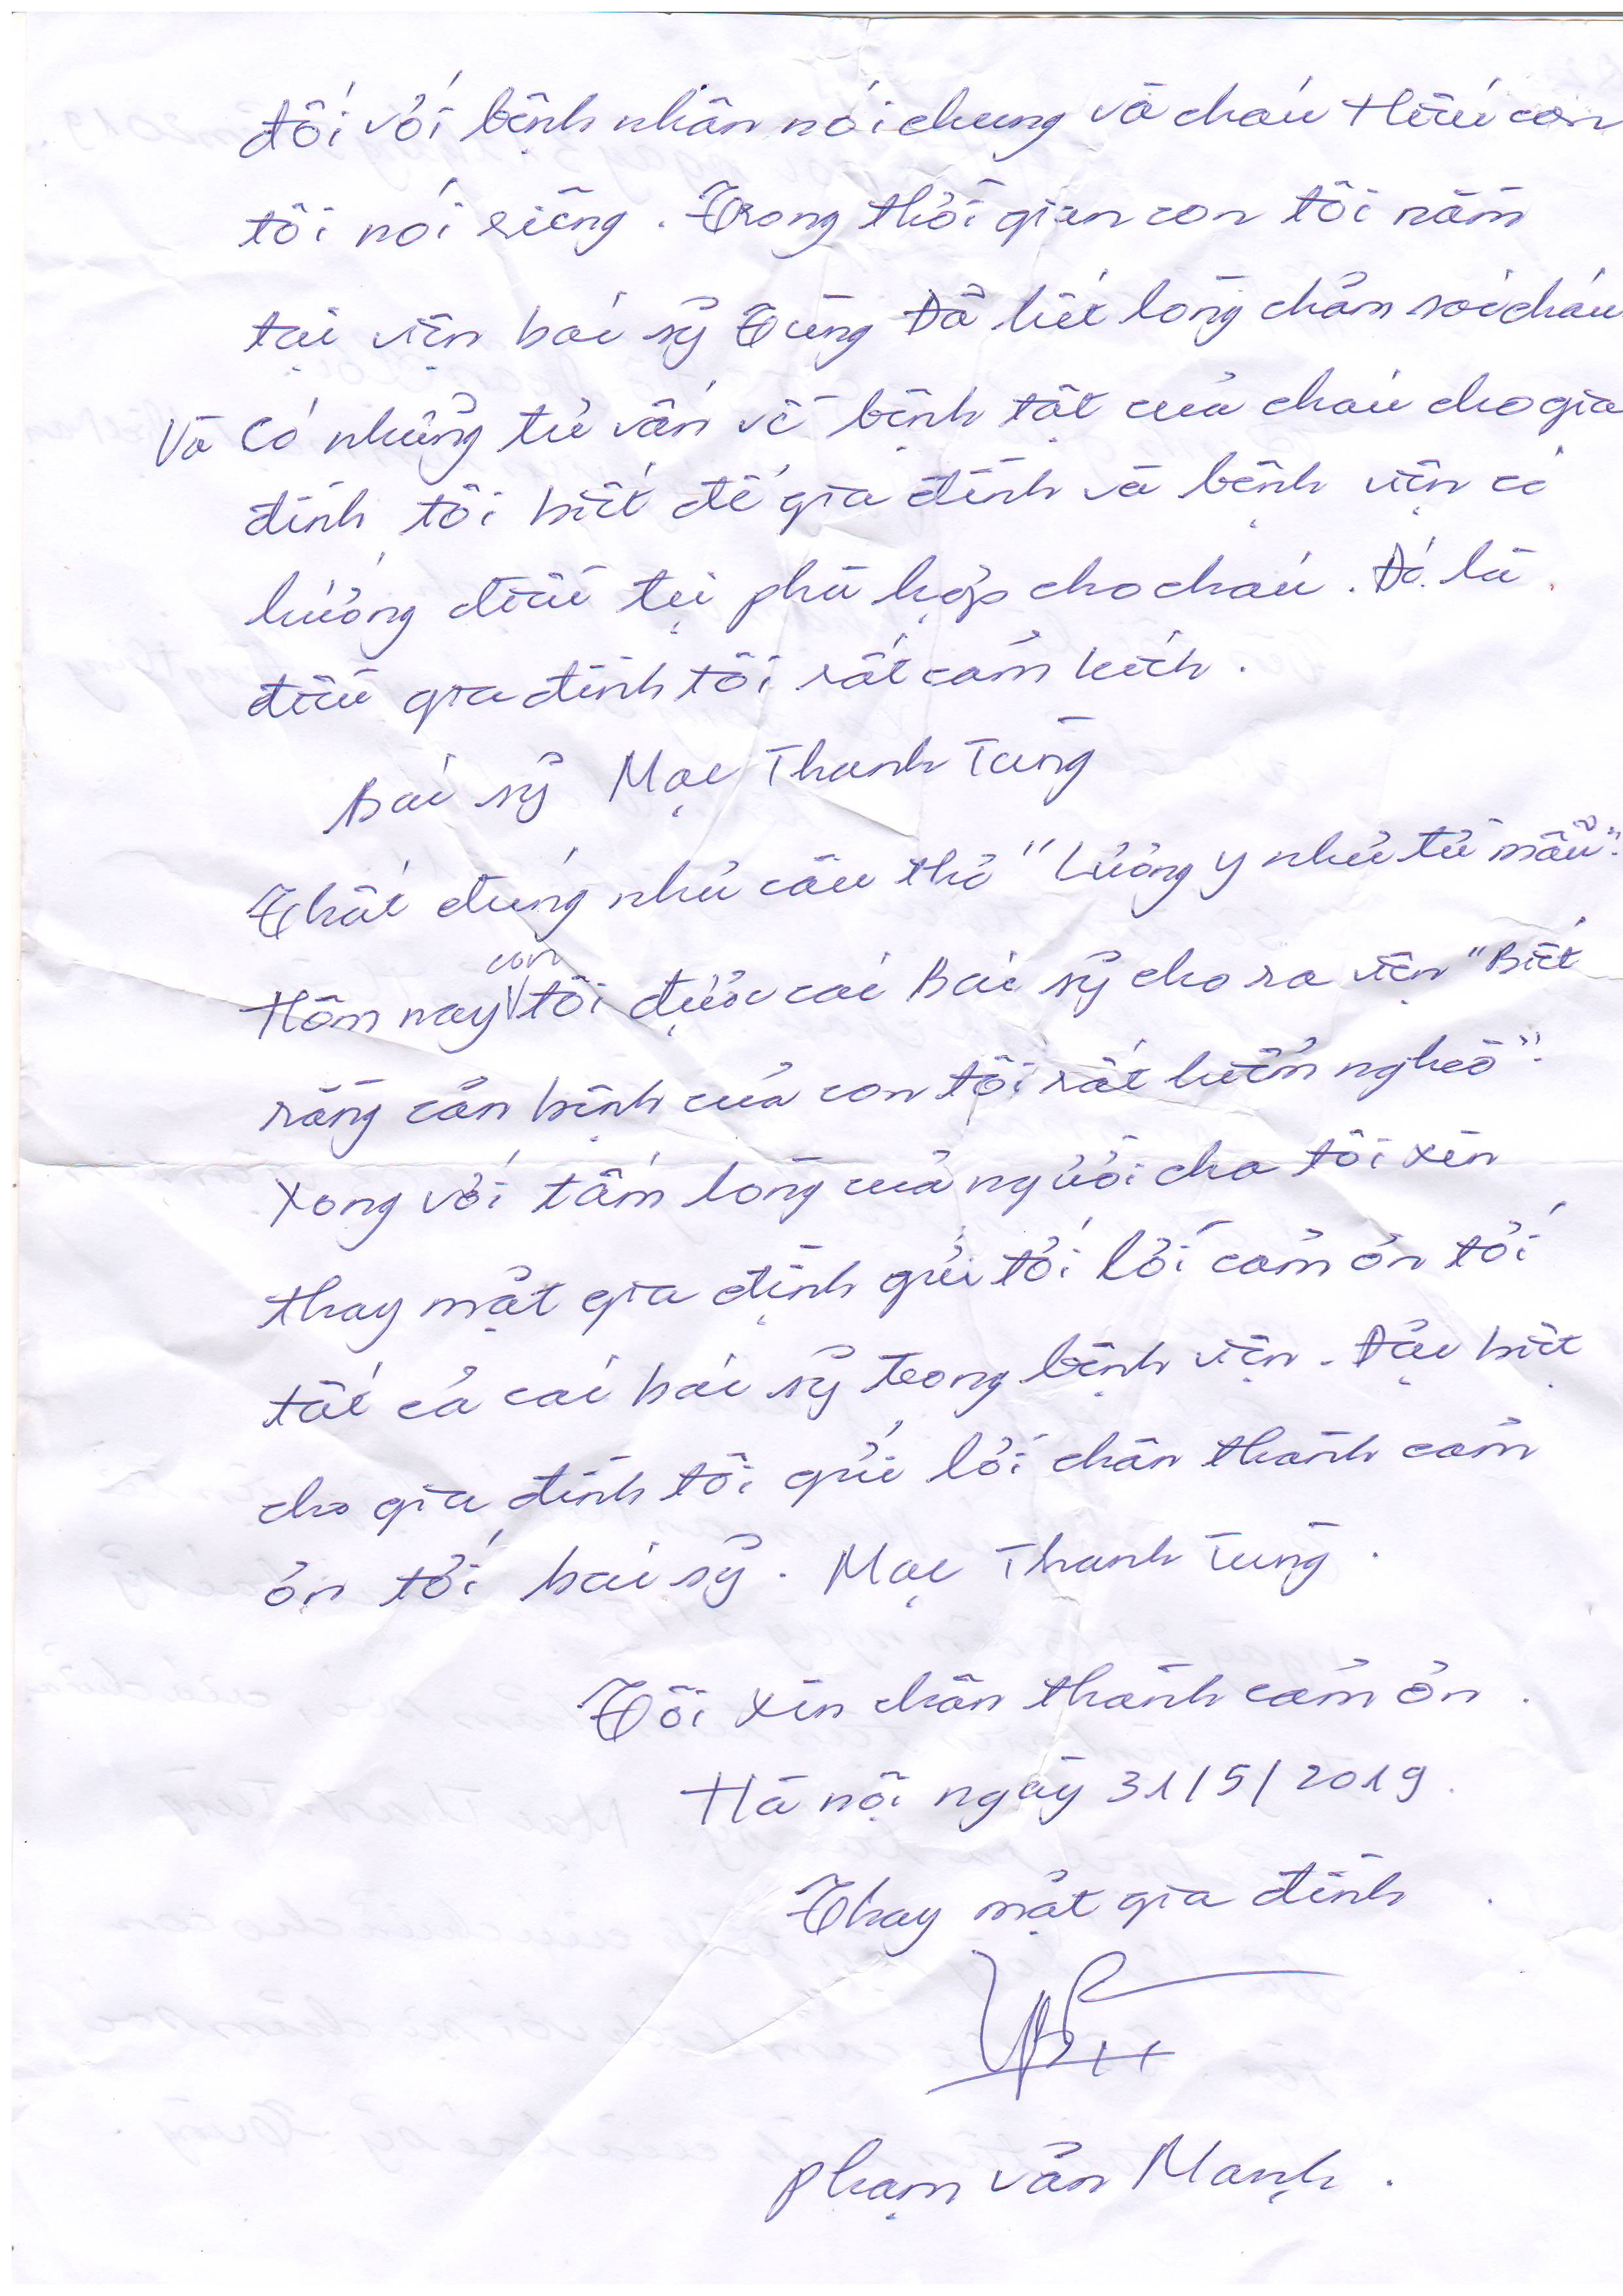 đối với bệnh nhân nói chung và cháu Hiếu con
tôi nói riêng. Trong thời gian con tôi nằm
tại viện bác sỹ Tùng Đã hết lòng chăm sóc cháu
Và Có những tư vấn về bệnh tật của cháu cho gia
đình tôi biết để gia đình và bệnh viện có
hướng điều trị phù hợp cho cháu. Đó là
điều gia đình tôi rất cảm kích.
Bác sỹ Mạc Thanh Tùng
Thật đúng như câu thơ "Lương y như từ mẫu".
Hôm nay con tôi được các Bác sỹ cho ra viện "Biết
rằng căn bệnh của con tôi rất hiểm nghèo".
Xong với tấm lòng của người cha tôi xin
thay mặt gia đình gửi tới lời cảm ơn tới
tất cả các bác sỹ trong bệnh viện. Đặc biệt
cho gia đình tôi gửi lời chân thành cảm
ơn tới bác sỹ. Mạc Thanh Tùng.
Tôi xin chân thành cảm ơn.
Hà nội ngày 31/5/2019.
Thay mặt gia đình
Phạm văn Mạnh.